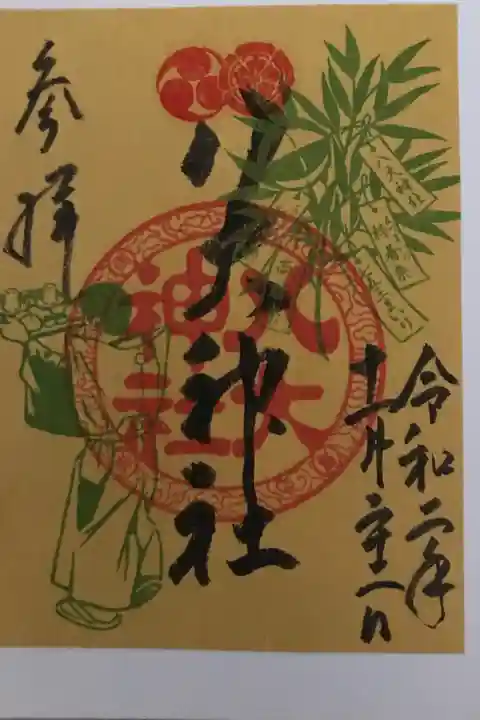 令和二年
十一月二十一日
八大神社
八大
神社
八大神社
参拝